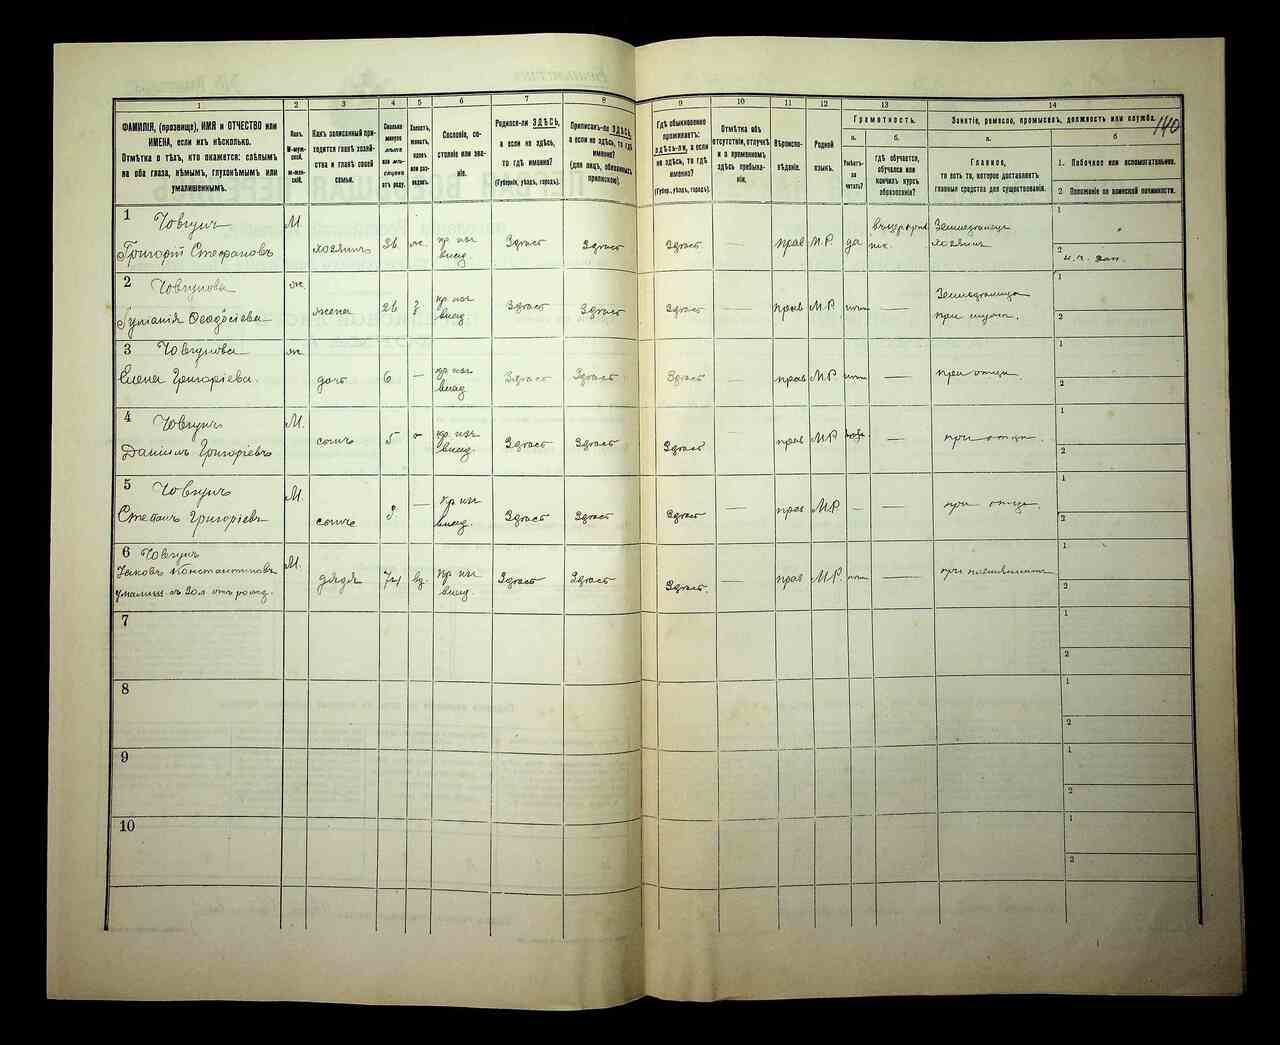 140
1 2 3 4 5 6 7 8 9 10 11 12 13 14
ФАМИЛІЯ, (прозвище), ИМЯ и ОТЧЕСТВО или
ИМЕНА, если ихъ нѣсколько.
Отмѣтка о тѣхъ, кто окажется: слѣпымъ
на оба глаза, нѣмымъ, глухонѣмымъ или
умалишеннымъ.
Полъ.
М-муж-
ской.
ж-жен-
скій.
Какъ записанный при-
ходится главѣ хозяй-
ства и главѣ своей
семьи.
Сколько
минуло
лѣтъ
или мѣ-
сяцевъ
отъ роду.
Холостъ,
женатъ,
вдовъ
или раз-
веденъ.
Сословіе, со-
стояніе или зва-
ніе.
Родился-ли ЗДѢСЬ,
а если не здѣсь,
то гдѣ именно?
(Губернія, уѣздъ, городъ).
Приписанъ-ли ЗДѢСЬ,
а если не здѣсь, то гдѣ
именно?
(для лицъ, обязанныхъ
припискою).
Гдѣ обыкновенно
проживаетъ:
ЗДѢСЬ-ЛИ, а если
не здѣсь, то гдѣ
именно?
(Губерн., уѣздъ, городъ).
Отмѣтка объ
отсутствіи, отлучкѣ
и о временномъ
здѣсь пребыва-
ніи.
Вѣроиспо-
вѣданіе.
Родной
языкъ.
Грамотность.
а. б.
Умѣетъ-
ли
читать?
гдѣ обучается,
обучался или
кончилъ курсъ
образованія?
Занятіе, ремесло, промыселъ, должность или служба.
а. б
Главное,
то есть то, которое доставляетъ
главныя средства для существованія.
1. Побочное или вспомогательное.
2 Положеніе по воинской повинности.
1 Човгунъ М.
Григорій Стефановъ хозяинъ 26 ж. кр. изъ влад. Здѣсь Здѣсь Здѣсь — прав М.Р. да Земледѣлецъ хозяинъ
1
2
2 Човгунова ж.
Ѳеодосіева жена 26 з кр. изъ влад. Здѣсь Здѣсь Здѣсь — прав М.Р. нѣтъ — Земледѣлица при мужѣ.
1
2
3 Човгунова ж.
Елена Григоріева. дочь 6 — кр. изъ влад Здѣсь Здѣсь Здѣсь — прав М.Р. нѣтъ — при отцѣ
1
2
4 Човгунъ М.
Даніилъ Григоріевъ сынъ 5 кр. изъ влад. Здѣсь Здѣсь Здѣсь — прав М.Р. — при отцѣ.
1
2
5 Човгунъ М.
Степанъ Григоріевъ сынъ 3 — кр изъ влад. Здѣсь Здѣсь Здѣсь — прав М.Р. — — при отцѣ.
1
2
6 Човгунъ М.
Яковъ Константиновъ дядя 74 вд. кр изъ влад. Здѣсь Здѣсь Здѣсь. — прав М.Р. нѣтъ — при племянникѣ
съ 20 л отъ рожд.
1
2
7
1
2
8
1
2
9
1
2
10
1
2